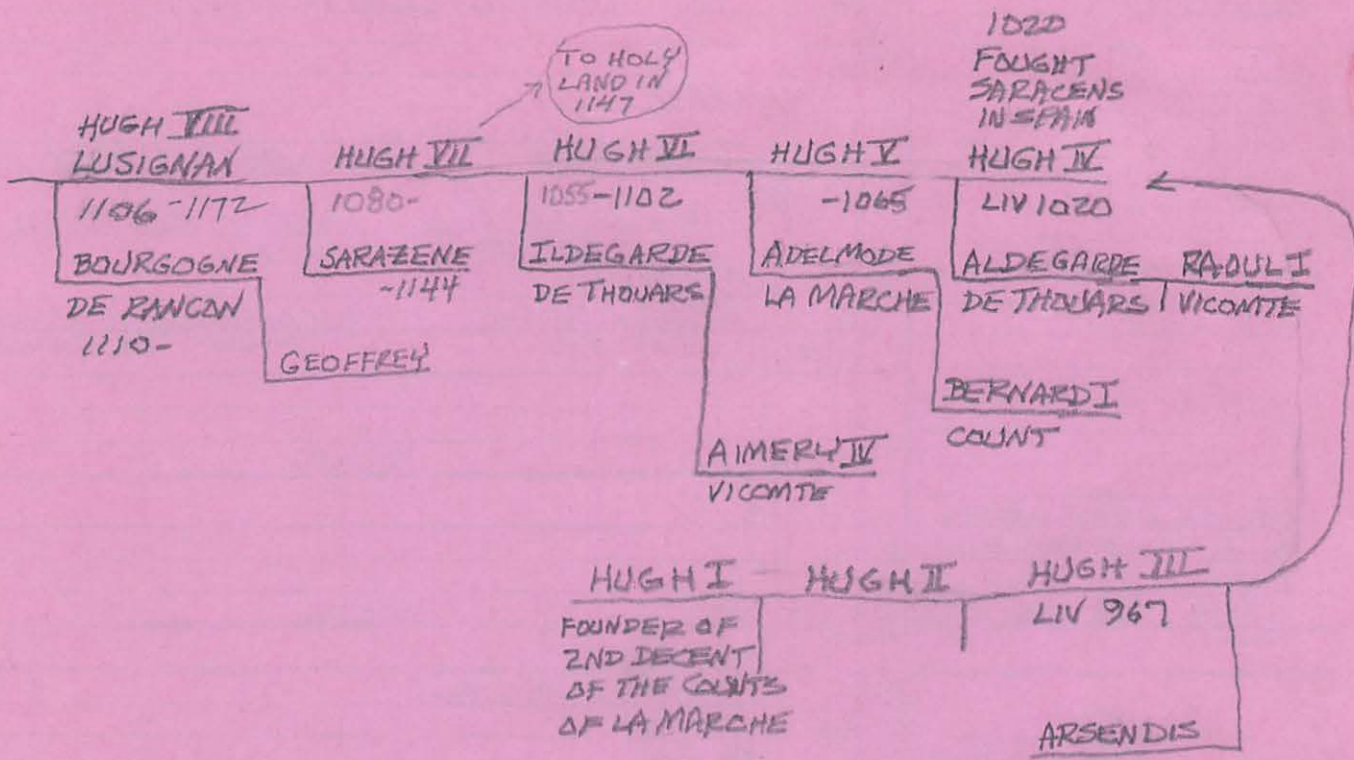 1020
FOUGHT
SARACENS
IN SPAIN
TO HOLY
LAND IN
1147
HUGH VIII
LUSIGNAN
1106-1172
BOURGOGNE
DE RANCON
1110-
GEOFFREY
HUGH VII
1080-
SARAZENE
-1144
HUGH VI
1055-1102
ILDEGARDE
DE THOUARS
AIMERY IV
VICOMTE
HUGH V
-1065
ADELMODE
LA MARCHE
BERNARD I
COUNT
HUGH IV
LIV 1020
ALDEGARDE
DE THOUARS
RAOUL I
VICOMTE
HUGH I
FOUNDER OF
2ND DECENT
OF THE COUNTS
OF LA MARCHE
HUGH II
HUGH III
LIV 967
ARSENDIS